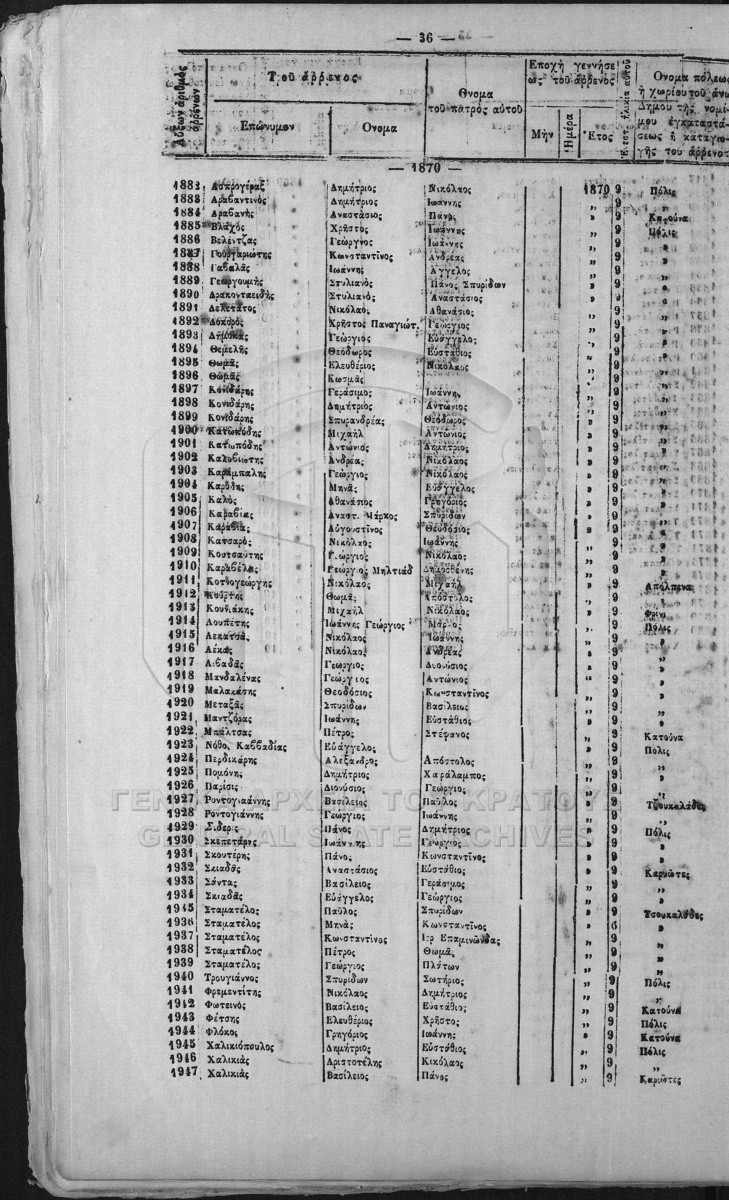 — 36 —
Αὔξων ἀριθμὸς ἀρρένων
Τοῦ ἄρρενος
Ἐπώνυμον
Ονομα
Ονομα τοῦ πατρὸς αὐτοῦ
Εποχὴ γεννήσεως τοῦ ἄρρενος
Μὴν
Ἡμέρα
Ἔτος
Ονομα πόλεως ἢ χωρίου τοῦ ἀνω Δημου τῆς νομίμου ἐγκαταστάσεως ἢ καταγωγῆς τοῦ ἄρρενος
— 1870 —
1882 Ασπρογέραξ Δημήτριος Νικόλαος 1870 9 Πόλις
1883 Αραβαντινὸς Δημήτριος Ιωάννης „ 9 „
1884 Αραβανῆς Αναστάσιος Πάνος » 9 Κατούνα
1885 Βλάχος Χρῆστος Ιωάννης „ 9 Πόλις
1886 Βελέντζας Γεώργιος Ιωάννης „ 9 »
1887 Γουργαριώτης Κωνσταντῖνος Ανδρέας „ 9 »
1888 Γαβαλᾶς Ιωάννης Αγγελος „ 9 »
1889 Γεωργουμῆς Στυλιανὸς Πάνος Σπυρίδων „ 9 »
1890 Δρακονταειδὴς Στυλιανὸς Αναστάσιος » 9
1891 Δελετάτος Νικόλαος Αθανάσιος „ 9
1892 Δοκαρὸς Χρῆστος Παναγιώτ. Γεώργιος „ 9
1893 Γεώργιος Εὐάγγελος „ 9
1894 Θεμελῆς Θεόδωρος Εὐστάθιος » 9
1895 Θωμᾶς Ελευθέριος Νικόλαος „ 9
1896 Θωμᾶς Κωσμᾶς 9
1897 Κονιδάρης Γεράσιμος Ιωάννης 9
1898 Κονιδάρης Δημήτριος Αντώνιος » 9
1899 Κονιδάρης Σπυρανδρέας Θεόδωρος 9
1900 Κατωπόδης Μιχαὴλ Αντώνιος » 9
1901 Κατωπόδης Αντώνιος Δημήτριος » 9
1902 Καλοβιωτης Ανδρέας Νικόλαος » 9
1903 Καράμπαλης Γεώργιος Νικόλαος „ 9
1904 Καρύδης Μηνᾶς Εὐάγγελος » 9
1905 Καλὸς Αθανάσιος Γρηγόριος „ 9
1906 Καραβίας Αναστ. Μάρκος Σπυρίδων „ 9
1907 Καραβίας Αὐγουστῖνος Θεοδόσιος » 9
1908 Κατσαρὸς Νικόλαος Ιωάννης „ 9
1909 Κοστσαύτης Γεώργιος Νικόλαος „ 9
1910 Καραβέλας Γεώργιος Μηλτιάδ Δημοσθένης „ 9
1911 Κοτλογεώργης Νικόλαος Μιχαὴλ » 9 Απόλπενα
1912 Κούρτης Θωμᾶς Απόστολος 9
1913 Κουνιάκης Μιχαὴλ Νικόλαος „ 9 Φρίνι
1914 Λουπέτης Ιωάννης Γεώργιος Μάρκος „ 9 Πόλις
1915 Λεκατσᾶς Νικόλαος Ιωάννης „ 9 „
1916 Λέκας Νικόλαος Ανδρέας » 9 „
1917 Λιβαδᾶς Γεωργιος Διονύσιος „ 9 »
1918 Μανδαλένας Γεώργιος Αντώνιος “ 9 »
1919 Μαλακάσης Θεοδόσιος Κωνσταντῖνος „ 9 »
1920 Μεταξᾶς Σπυρίδων Βασίλειος „ 9 „
1921 Μαντζάρας Ιωάννης Εὐστάθιος » 9 »
1922 Μπάλτσας Πέτρος Στέφανος » 9 Κατούνα
1923 Νόθος Καββαδίας Εὐάγγελος » 9 Πόλις
1924 Περδικάρης Αλεξανδρος Απόστολος » 9 „
1925 Πομόνης Δημήτριος Χαράλαμπος „ 9 »
1926 Παρίσις Διονύσιος Γεώργιος „ 9 „
1927 Ῥοντογιαάννης Βασίλειος Παῦλος » 9 Τζουκαλάδες
1928 Ῥοντογιάννης Γεώργιος Ιωάννης „ 9 „
1929 Σιδερις Πάνος Δημήτριος „ 9 Πόλις
1930 Σκεπετάρης Ιωάννης Γεώργιος » 9 »
1931 Σκουτέρης Πάνος Κωνσταντῖνος » 9 »
1932 Σκιαδᾶς Αναστάσιος Εὐστάθιος » 9 Καρυῶτες
1933 Σάντας Βασίλειος Γεράσιμος „ 9 „
1934 Σκιαδᾶς Εὐάγγελος Γεώργιος „ 9 »
1945 Σταματέλος Παῦλος Σπυρίδων » 9 Τσουκαλάδες
1936 Σταματέλος Μηνᾶς Κωνσταντῖνος » 6 »
1937 Σταματέλος Κωνσταντῖνος Ἱερ Επαμινώνδας „ 9 »
1938 Σταματέλος Πέτρος Θωμᾶς „ 9 „
1939 Σταματέλος Γεώργιος Πλάτων „ 9 „
1940 Τρουγιάννος Σπυρίδων Σωτήριος „ 9 Πόλις
1941 Φρεμεντίτης Νικόλαος Δημήτριος „ 9 „
1942 Φωτεινὸς Βασίλειος Εὐστάθιος „ 9 Κατούνα
1943 Φέτσης Ελευθέριος Χρῆστος „ 9 Πόλις
1944 Φλόκος Γρηγόριος Ιωάννης „ 9 Κατούνα
1945 Χαλικιόπουλος Δημήτριος Εὐστάθιος » 9 Πόλις
1946 Χαλικιὰς Αριστοτέλης Νικόλαος „ 9 „
1947 Χαλικιὰς Βασίλειος Πάνος „ 9 Καρυῶτες
ΓΕΝΙΚΑ ΑΡΧΕΙΑ ΤΟΥ ΚΡΑΤΟΥΣ
GENERAL STATE ARCHIVES